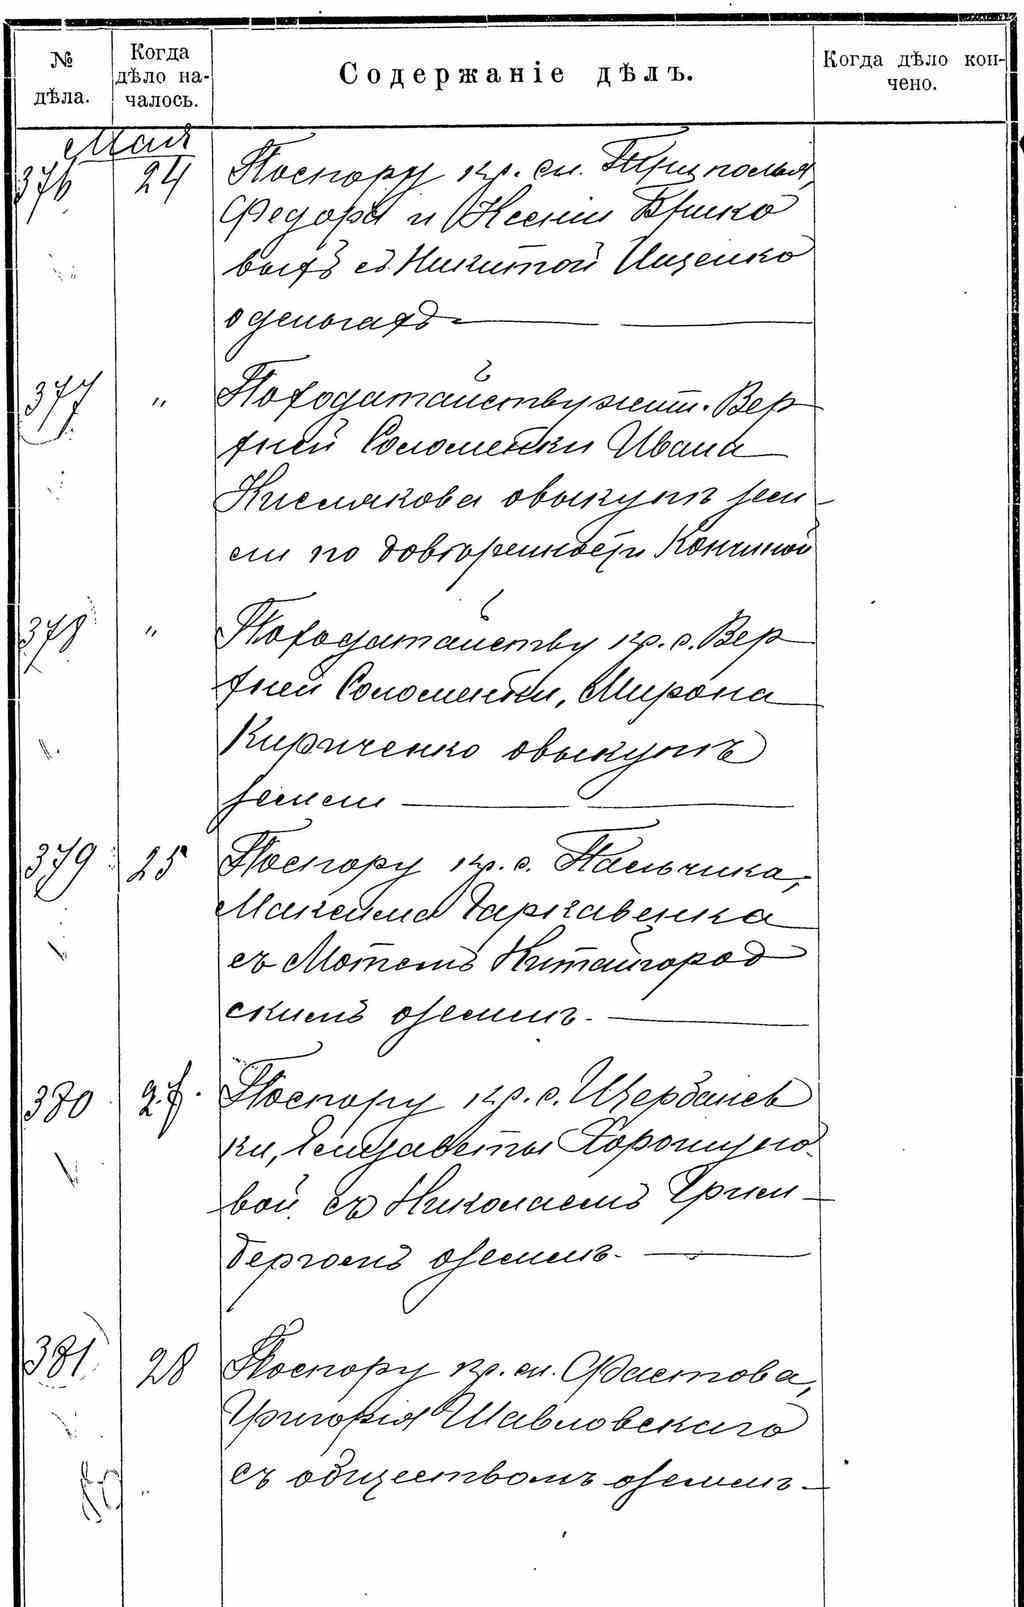 № дѣла.
Когда дѣло началось.
Содержаніе дѣлъ.
Когда дѣло кончено.
Мая
376 24 По спору кр. м. Триполья,
Федора и Ксеніи
выхъ съ Никитой Ищенко
о деньгахъ
377 " По ходатайству жит. Вер
хней Соломенки Ивана
Кислякова о выкупѣ зем
ли по довѣренности
378 " По ходатайству кр. с. Вер
хней Соломенки, Мирона
Кириченко о выкупѣ
земли
379 25 По спору кр. с. Пальчика,
Максима Таркавенка
съ Мотемъ Китайгород
скимъ о землѣ.
380 27. По спору кр. с. Щербанев
ки, Елизаветы
вой съ Николаемъ Грин
бергомъ о землѣ.
381 28 По спору кр. м. Фастова,
Григорія Шавловскаго
съ обществомъ о землѣ